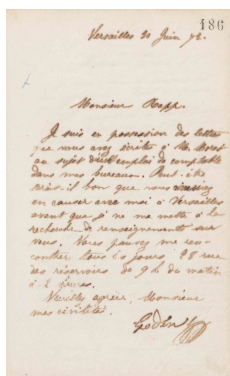 186
Versailles 20 Juin 72.
Monsieur Rapp.
Je suis en possession des lettres
que vous avez écrites à Mr. Moret
au sujet d'un emploi de comptable
dans mes bureaux. Peut-être
serait-il bon que vous veniez
en causer avec moi à Versailles
avant que je ne me mette à la
recherche de renseignements sur
vous. Vous pouvez me ren-
contrer tous les jours 28 rue
des réservoirs de 9h du matin
à 2 heures.
Veuillez agréer, Monsieur
mes civilités.
Godin